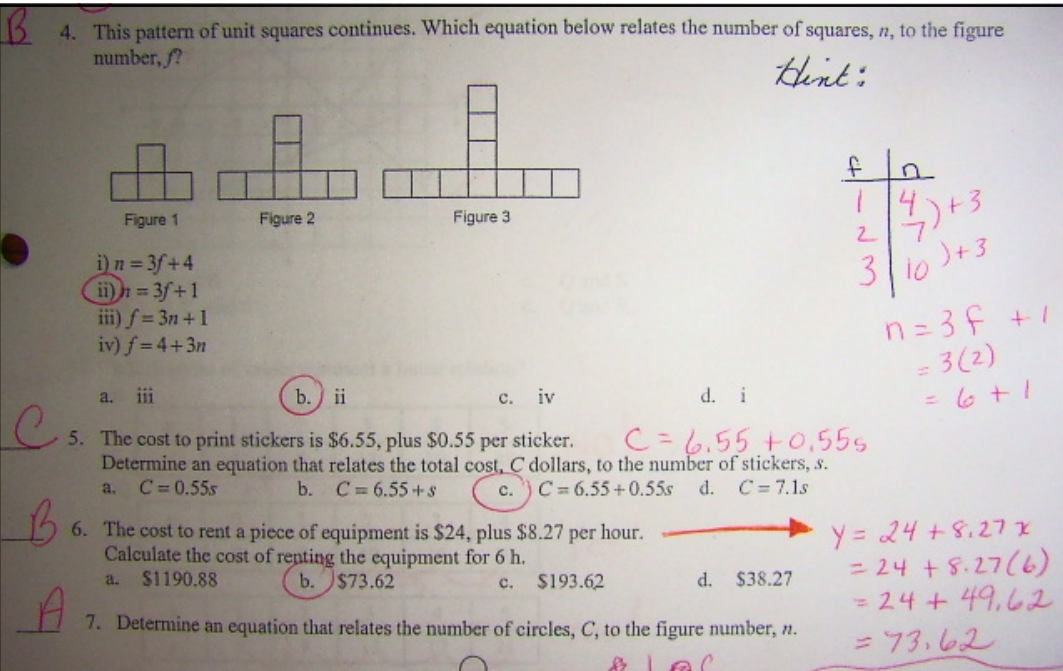 B 4. This pattern of unit squares continues. Which equation below relates the number of squares, n, to the figure
number, f?
Hint:
Figure 1 Figure 2 Figure 3
f n
1 4
)+3
2 7
)+3
3 10
i) n = 3f + 4
ii) n = 3f + 1
iii) f = 3n + 1
iv) f = 4 + 3n
n = 3f + 1
= 3(2)
= 6 + 1
a. iii b. ii c. iv d. i
C 5. The cost to print stickers is $6.55, plus $0.55 per sticker. C = 6.55 + 0.55s
Determine an equation that relates the total cost, C dollars, to the number of stickers, s.
a. C = 0.55s b. C = 6.55 + s c. C = 6.55 + 0.55s d. C = 7.1s
B 6. The cost to rent a piece of equipment is $24, plus $8.27 per hour. y = 24 + 8.27x
Calculate the cost of renting the equipment for 6 h. = 24 + 8.27(6)
a. $1190.88 b. $73.62 c. $193.62 d. $38.27 = 24 + 49.62
A 7. Determine an equation that relates the number of circles, C, to the figure number, n. = 73.62